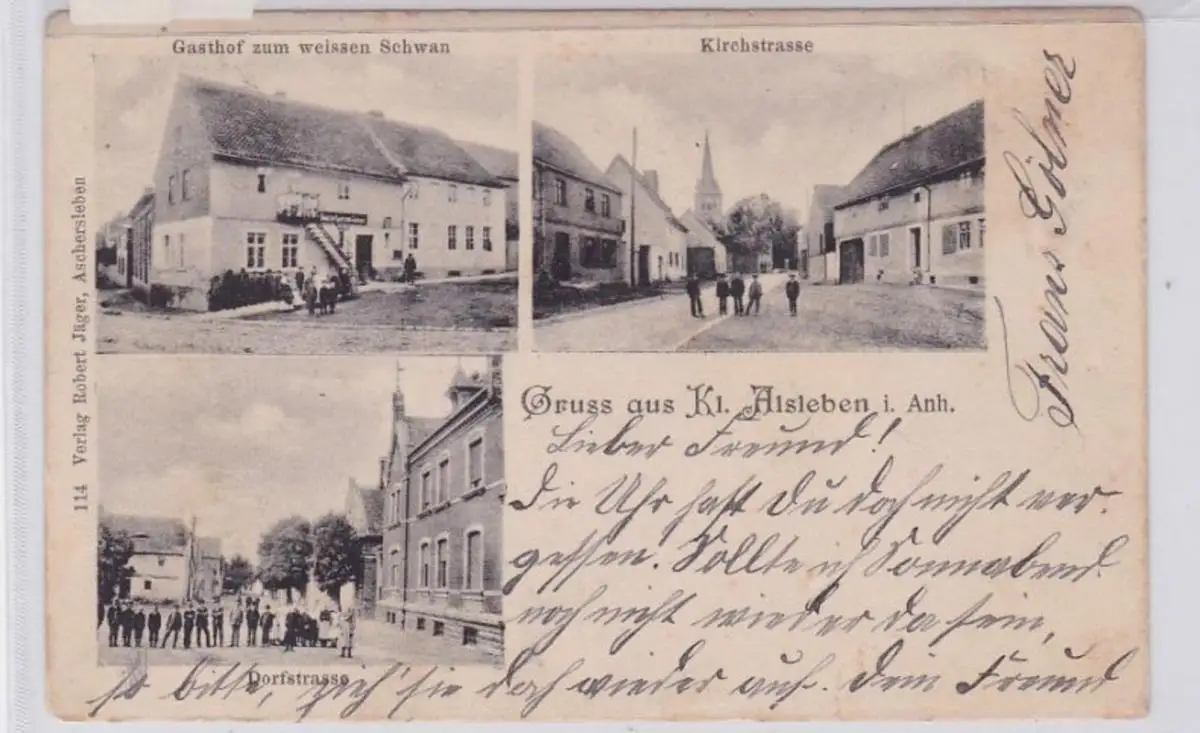 Gasthof zum weissen Schwan
Kirchstrasse
114 Verlag Robert Jäger, Aschersleben
Dorfstrasse
Gruss aus Kl. Alsleben i. Anh.
Lieber Freund!
Die Uhr hast Du doch nicht ver-
gessen. Sollte ich Sonnabend
noch nicht wieder da sein,
so bitte, zieh' sie doch wieder auf. Dein Freund
Franz Gölner